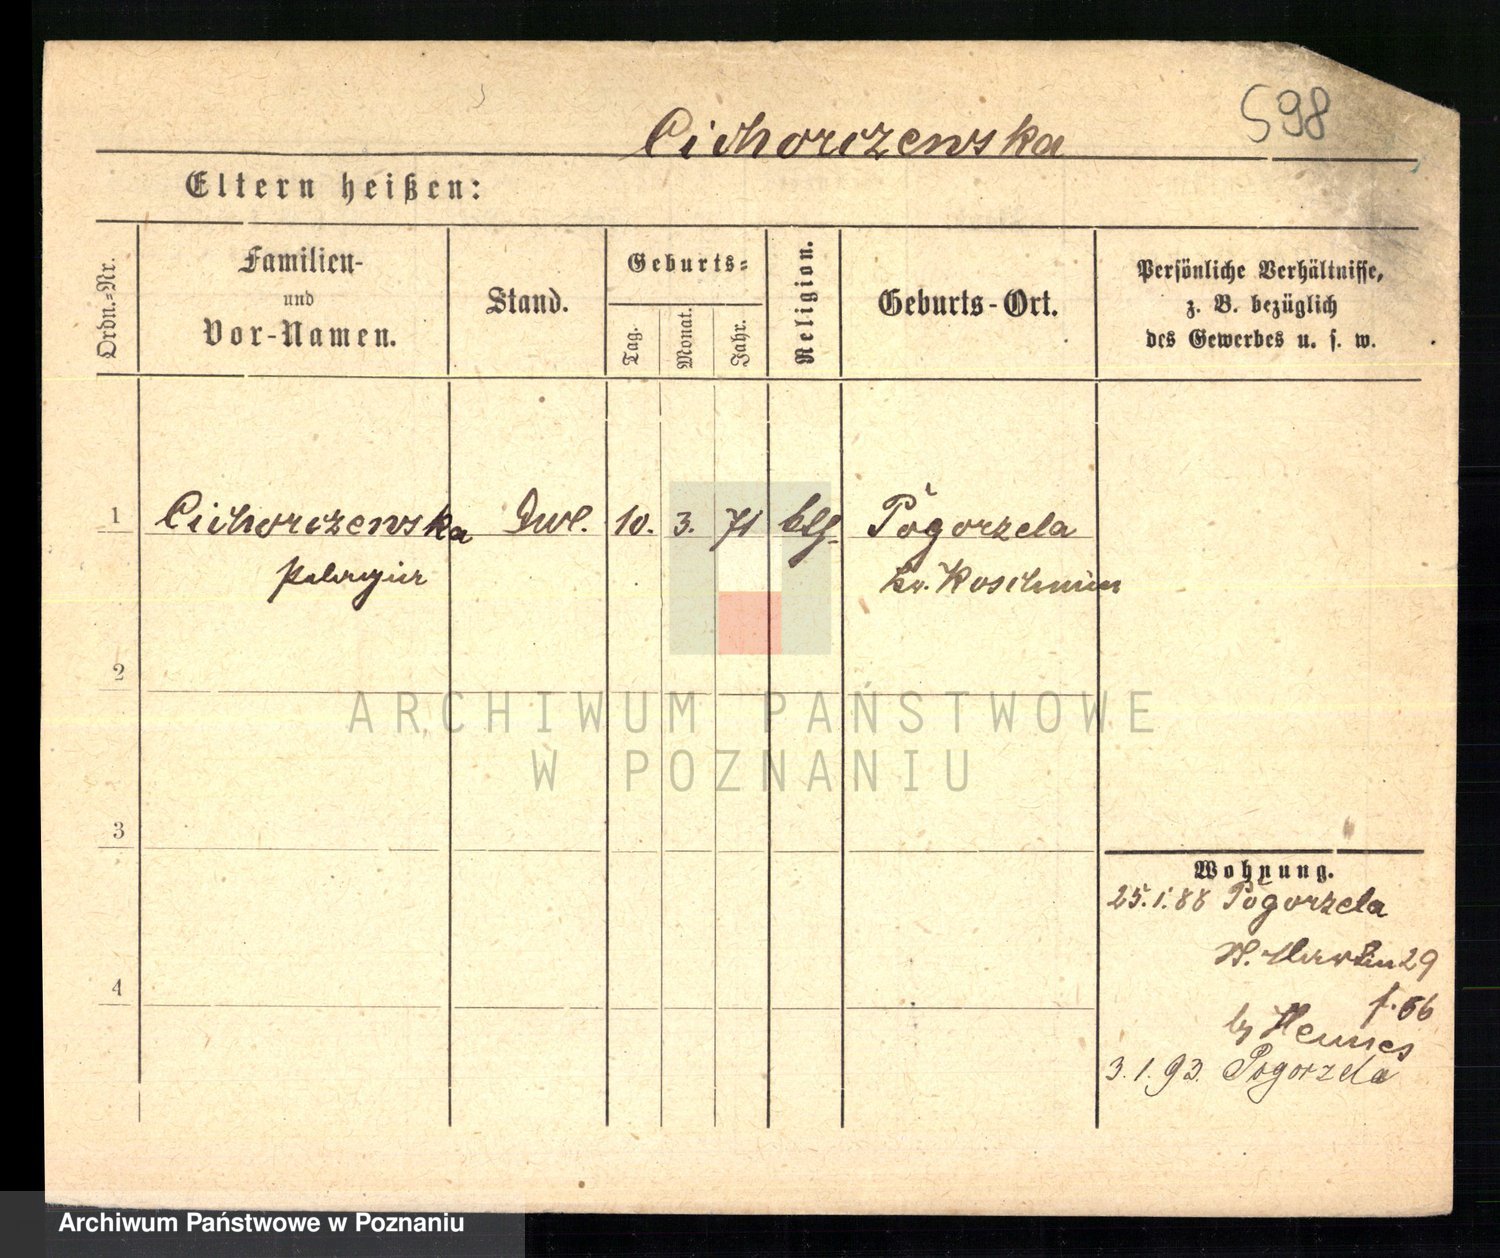 598
Cichorczewska
Eltern heißen:
Ordn.-Nr.
Familien-
und
Vor-Namen.
Stand.
Geburts-
Tag.
Monat.
Jahr.
Religion.
Geburts-Ort.
Persönliche Verhältnisse,
z. B. bezüglich
des Gewerbes u. s. w.
1 Cichorczewska 10. 3. 71 Pogorzela
Pelagia Kr. Koschmin
2
3
4
Wohnung.
25.1.88 Pogorzela
St. Martin 29
by Hennes
3.1.93. Pogorzela
ARCHIWUM PAŃSTWOWE
W POZNANIU
Archiwum Państwowe w Poznaniu